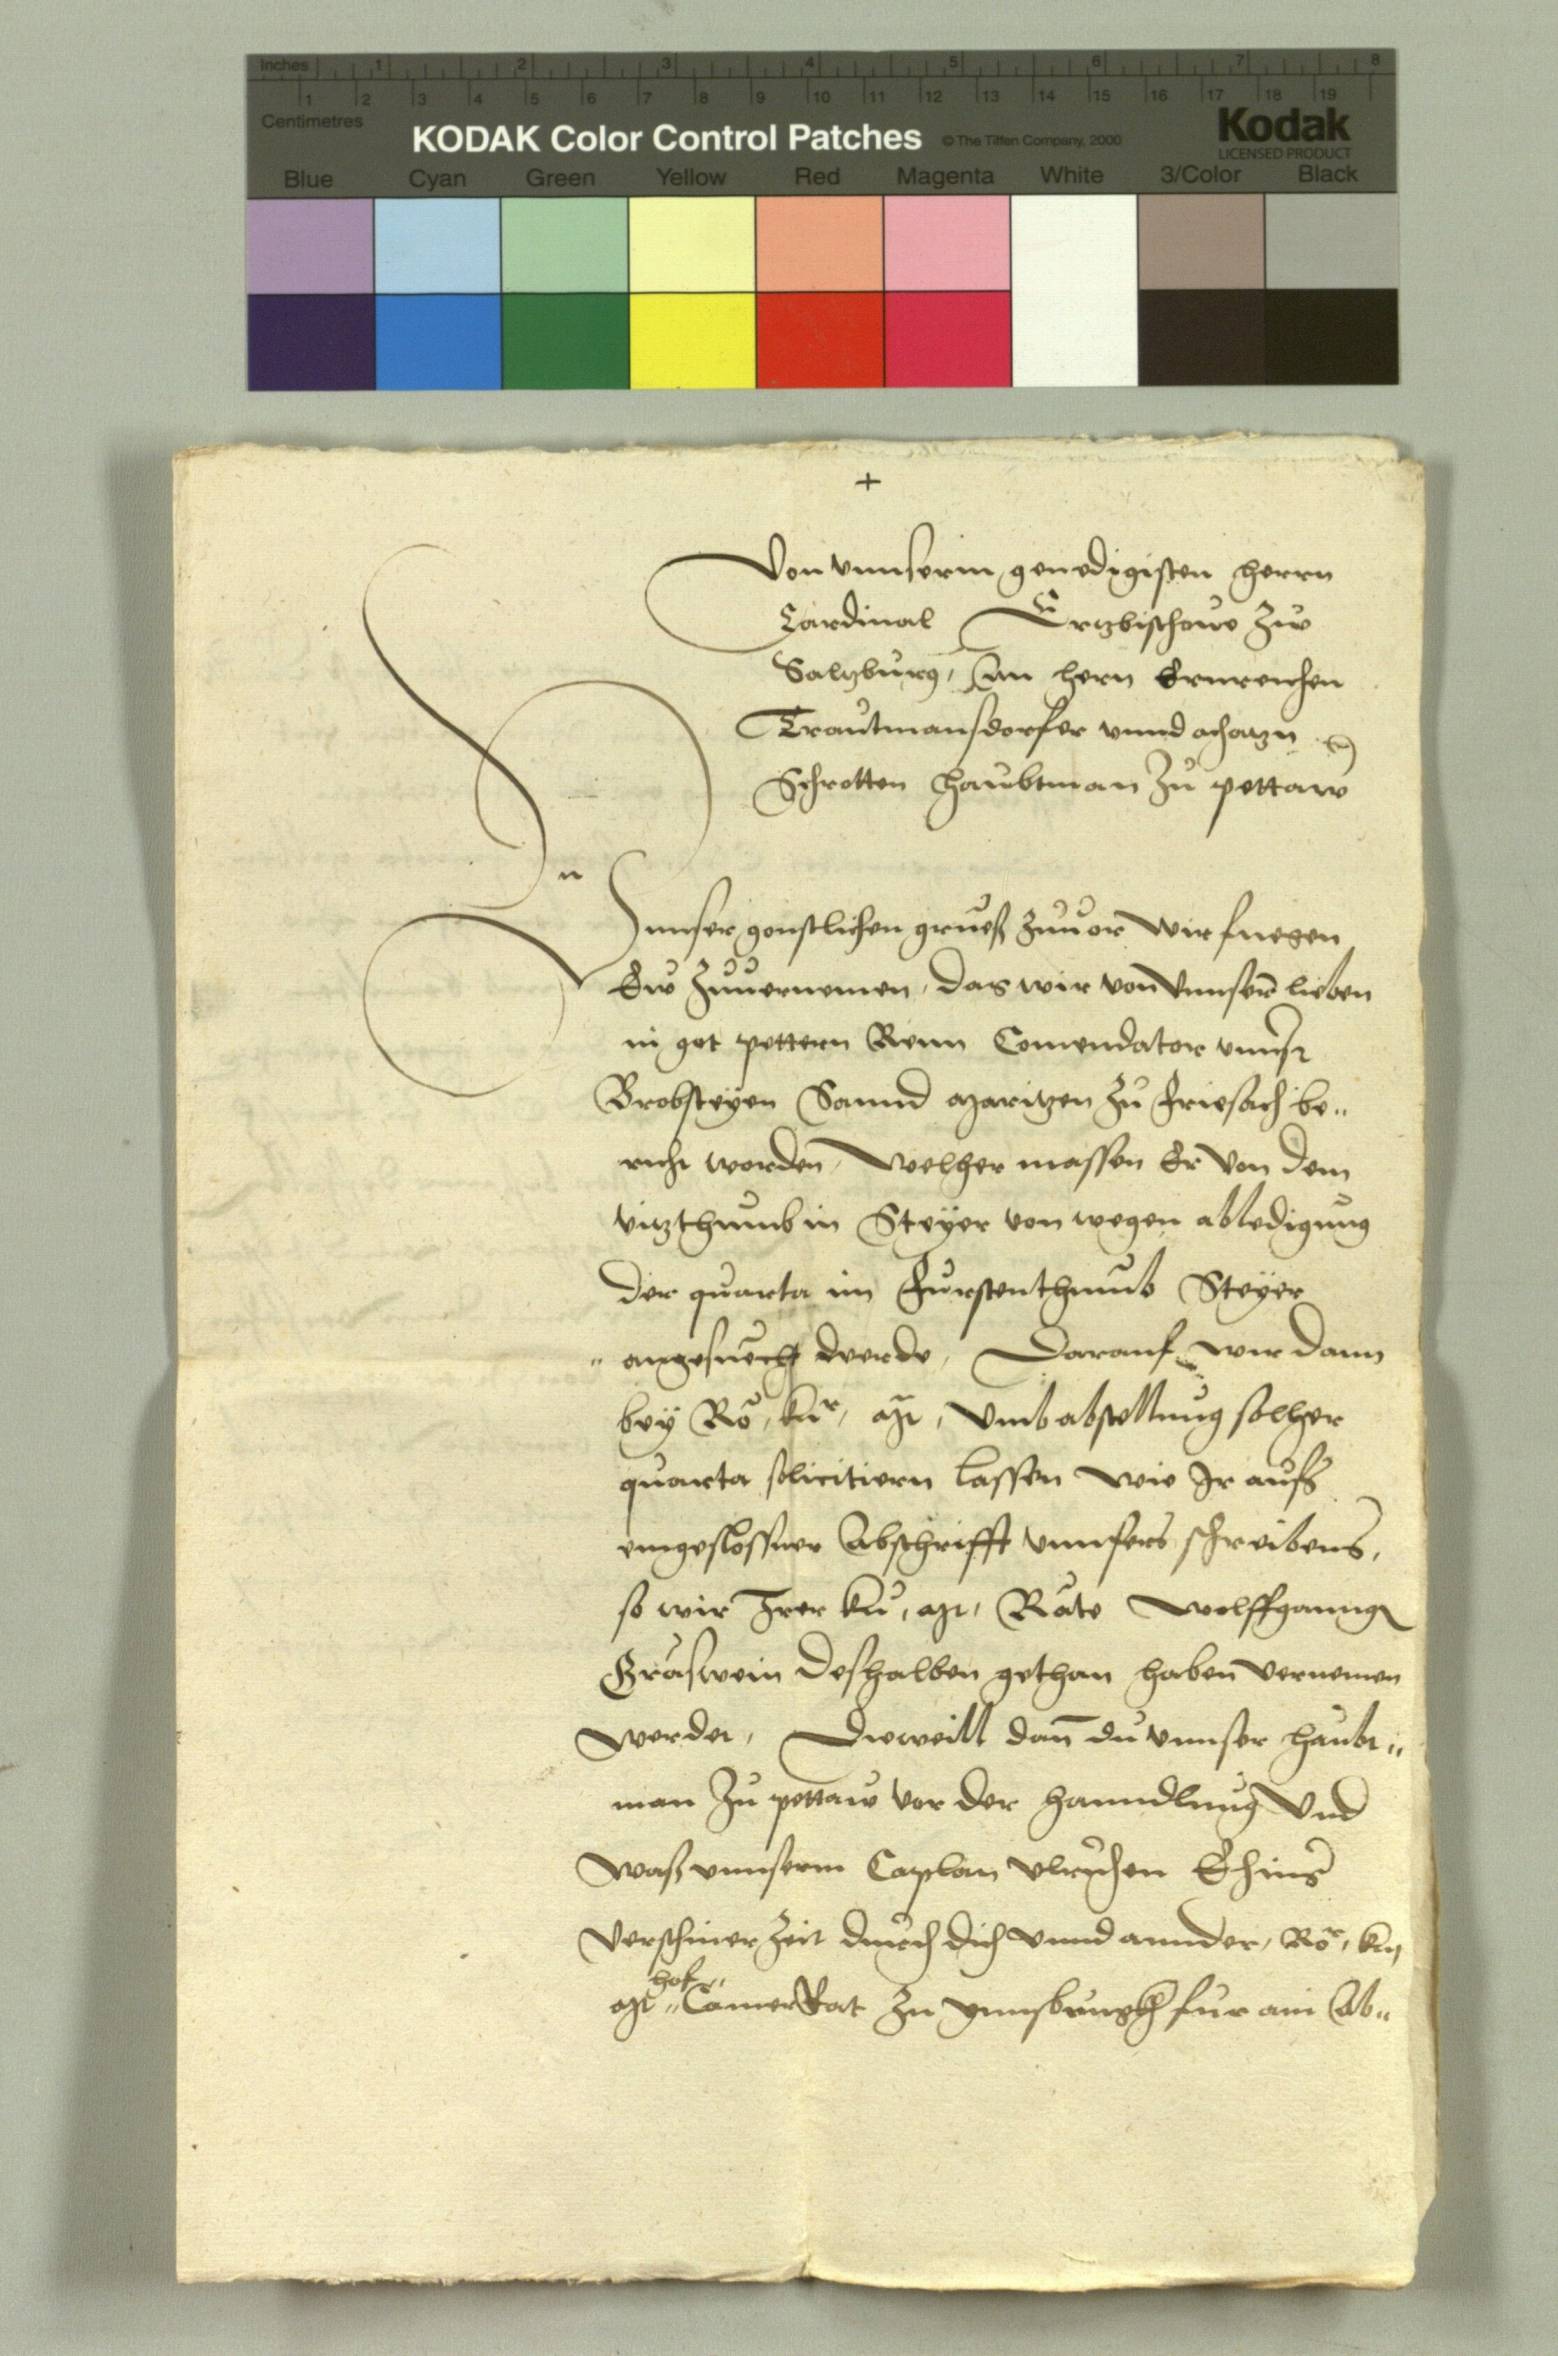 Inches 1 2 3 4 5 6 7 8
1 2 3 4 5 6 7 8 9 10 11 12 13 14 15 16 17 18 19
Centimetres
KODAK Color Control Patches © The Tiffen Company, 2000 Kodak
LICENSED PRODUCT
Blue Cyan Green Yellow Red Magenta White 3/Color Black
+
Von vnnserm genedigisten herrn
Cardinal Ertzbischoue Zw
Saltzburg, An hern Ernreichen
Trautmansdorfer vnnd achatzn
Schrotten haubtman Zu pettaw
Vnnser gonstlichen grueß Zuuor Wir fuegen
Ew Zuuernemen, das wir von Vnnserm lieben
in got vettern Renn Comendator vnnsr
Brobsteyen Sannd Maritzen Zu Friesach be„
richt worden, Welher massen Er von dem
vitzthumb in Steyer von wegen abledigung
der quarta im Furstenthumb Steyer
„ angesuecht werde, Darauf wir dann
bey Rö, kur, Mt, Vmb abstellung solher
quarta solicitiern lassen wie Jr aufs
eingeslossner Abschrifft vnnsers schreibens,
so wir Jrer kü, Mt, Räte Wolffganng
Gräswein deshalben gethan haben vernemen
werdet, Dieweill dan du vnnser haubt„
man Zu pettaw vor der hanndlung Vnd
Was vnnserm Caplan vlrichen
Verschiner Zeit durch dich vnnd annder, Rör, kn
hof„
Mt „CamerRat Zu Ynnsbrugkh fur ain Ab„